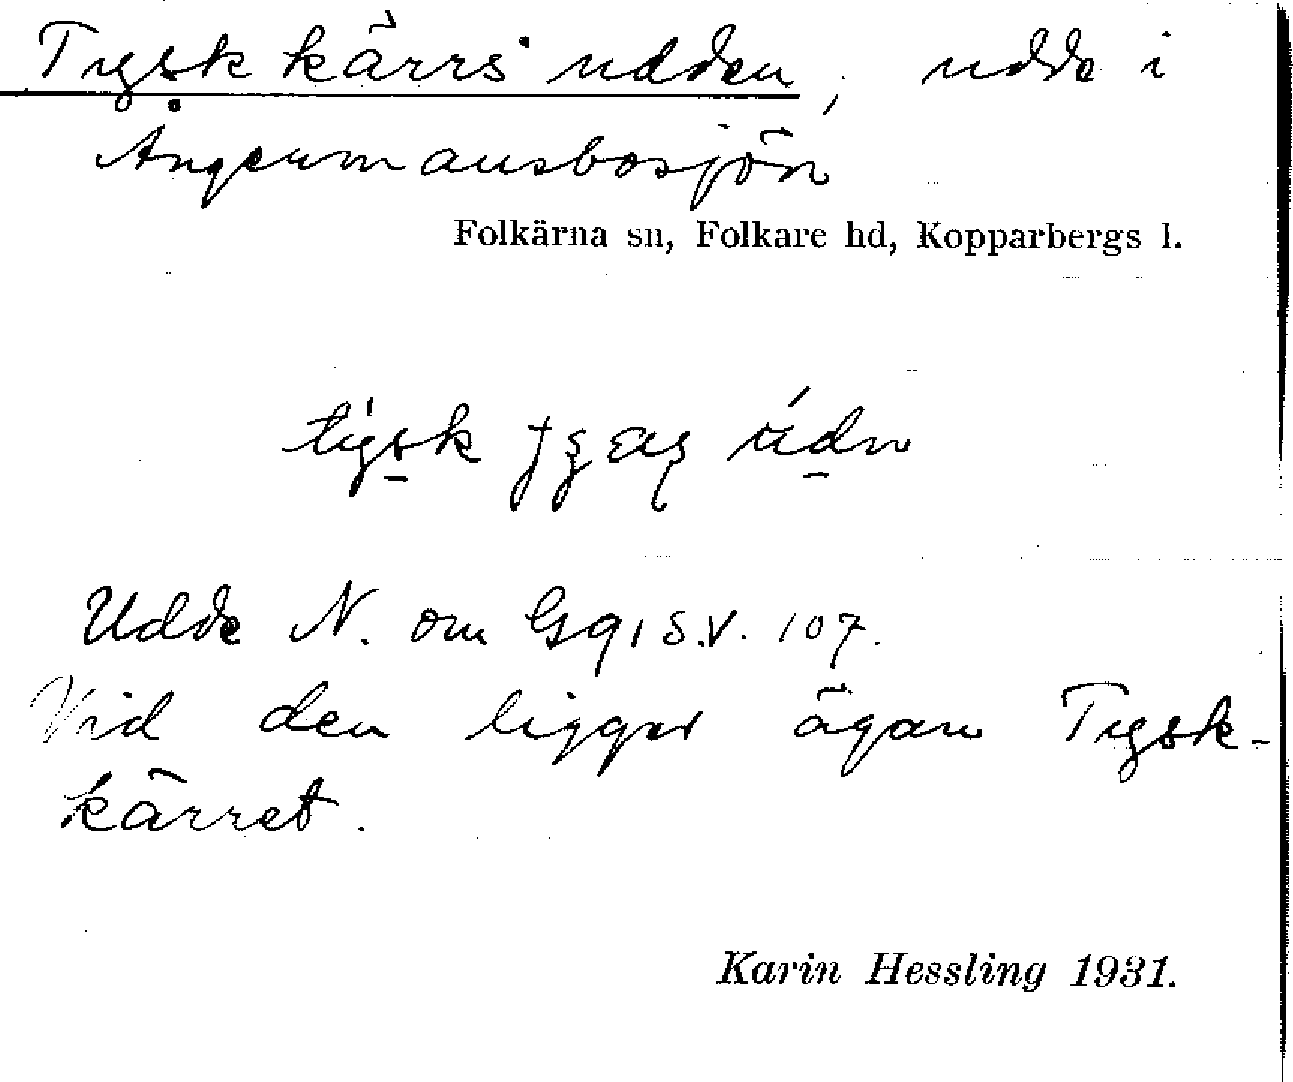 Tyskkärrsudden, udde i
Ångermansbosjön
Folkärna sn, Folkare hd, Kopparbergs l.
Udde N. om Gq, S.V. 107.
Vid den ligger ägan Tysk-
kärret.
Karin Hessling 1931.